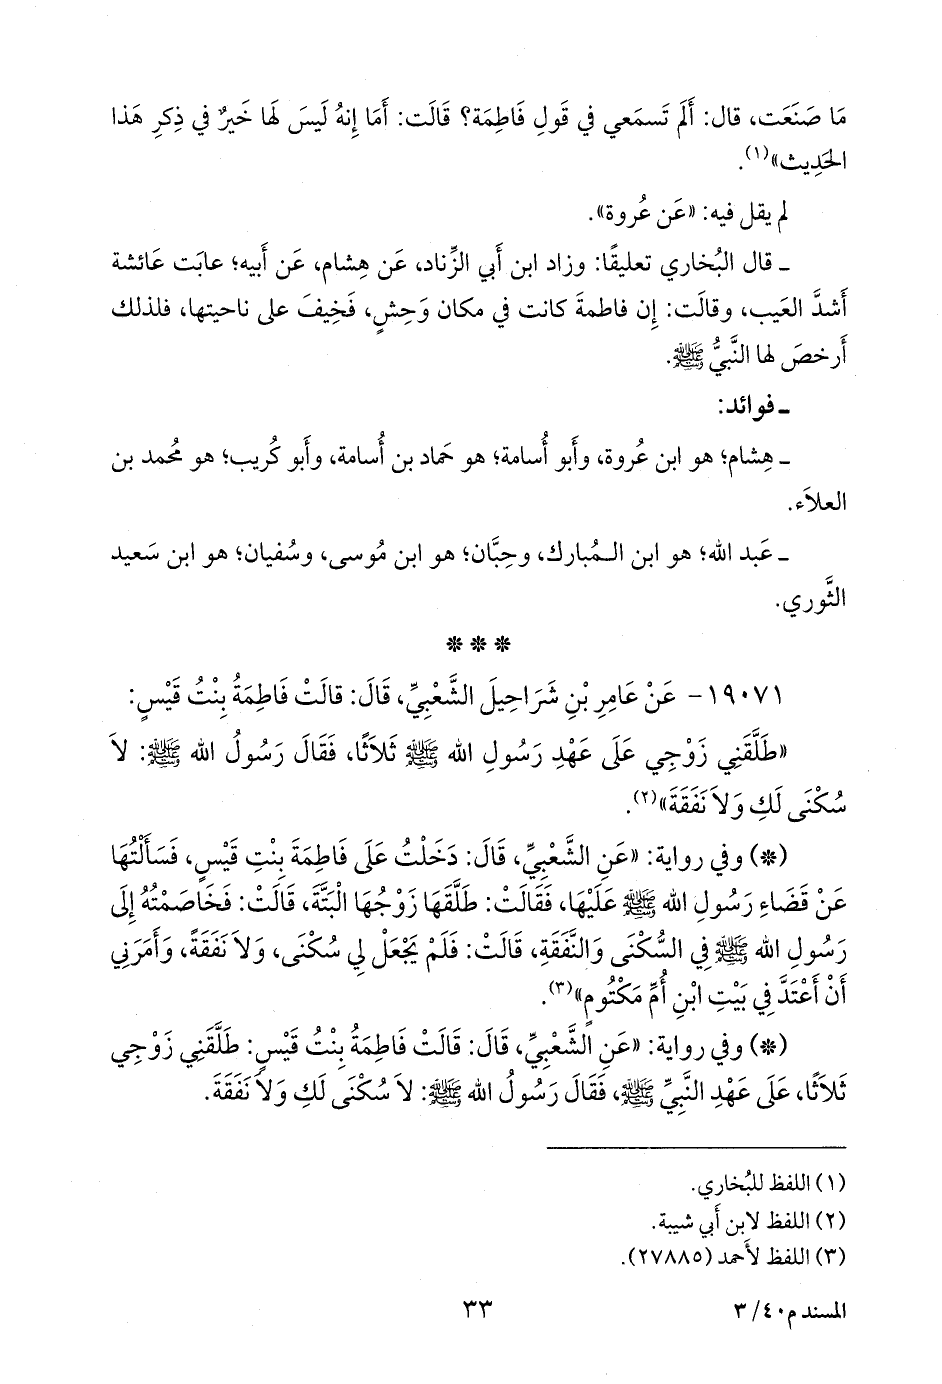 مَا صَنَعَت، قال: أَلَم تَسمَعي في قَولِ فَاطِمَة؟ قَالَت: أَمَا إِنهُ لَيسَ لَها خَيرٌ في ذِكرِ هَذا
الحَدِيث»(١).
لم يقل فيه: «عَن عُروة».
ـ قال البُخاري تعليقًا: وزاد ابن أَبي الزِّناد، عَن هِشام، عَن أَبيه؛ عابَت عَائشة
أَشدَّ العَيب، وقالَت: إِن فاطمةَ كانت في مكان وَحِشٍ، فَخِيفَ على ناحيتها، فلذلك
أَرخصَ لها النَّبيُّ ﷺ.
ـ فوائد:
ـ هِشام؛ هو ابن عُروة، وأَبو أُسامة؛ هو حَماد بن أُسامة، وأَبو كُريب؛ هو مُحمد بن
العلاَء.
ـ عَبد الله؛ هو ابن المُبارك، وحِبَّان؛ هو ابن مُوسى، وسُفيان؛ هو ابن سَعيد
الثَّوري.
* * *
١٩٠٧١- عَنْ عَامِرِ بْنِ شَرَاحِيلَ الشَّعْبِيِّ، قَالَ: قالَتْ فَاطِمَةُ بِنْتُ قَيْسٍ:
«طَلَّقَنِي زَوْجِي عَلَى عَهْدِ رَسُولِ الله ﷺ ثَلاَثًا، فَقَالَ رَسُولُ الله ﷺ: لاَ
سُكْنَى لَكِ وَلاَ نَفَقَةَ»(٢).
(*) وفي رواية: «عَنِ الشَّعْبِيِّ، قَالَ: دَخَلْتُ عَلَى فَاطِمَةَ بِنْتِ قَيْسٍ، فَسَأَلْتُهَا
عَنْ قَضَاءِ رَسُولِ الله ﷺ عَلَيْهَا، فَقَالَتْ: طَلَّقَهَا زَوْجُهَا الْبَتَّةَ، قَالَتْ: فَخَاصَمْتُهُ إِلَى
رَسُولِ الله ﷺ فِي السُّكْنَى وَالنَّفَقَةِ، قَالَتْ: فَلَمْ يَجْعَلْ لِي سُكْنَى، وَلاَ نَفَقَةً، وَأَمَرَنِي
أَنْ أَعْتَدَّ فِي بَيْتِ ابْنِ أُمِّ مَكْتُومٍ»(٣).
(*) وفي رواية: «عَنِ الشَّعْبِيِّ، قَالَ: قَالَتْ فَاطِمَةُ بِنْتُ قَيْسٍ: طَلَّقَنِي زَوْجِي
ثَلاَثًا، عَلَى عَهْدِ النَّبِيِّ ﷺ، فَقَالَ رَسُولُ الله ﷺ: لاَ سُكْنَى لَكِ وَلاَ نَفَقَةَ.
(١) اللفظ للبُخاري.
(٢) اللفظ لابن أَبي شيبة.
(٣) اللفظ لأَحمد (٢٧٨٨٥).
المسند م٤٠/ ٣
٣٣